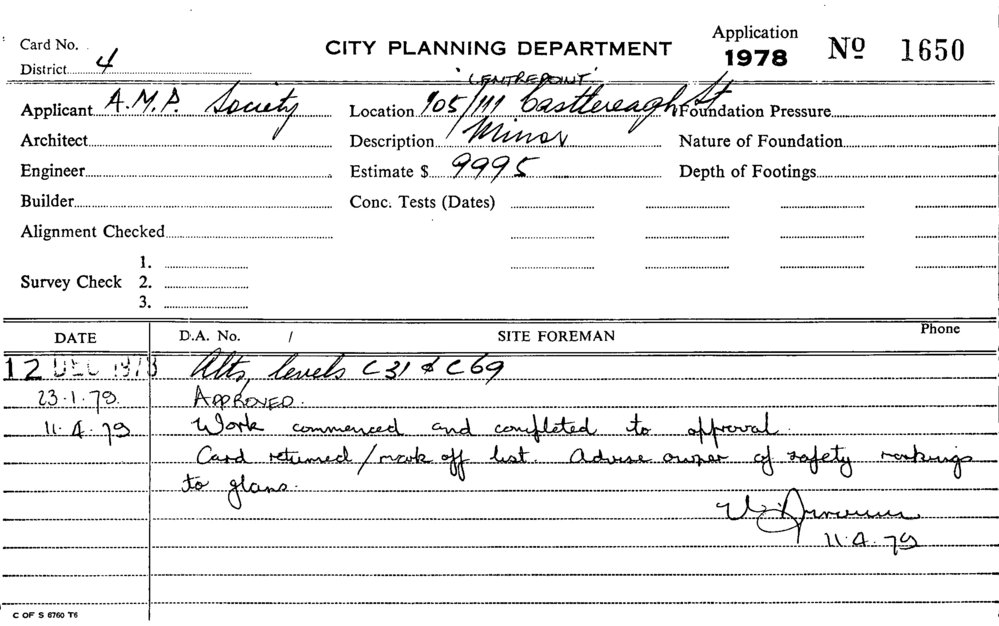 Card No.
District 4
CITY PLANNING DEPARTMENT
Application
1978
Nº 1650
"CENTREPOINT"
Applicant A.M.P. Society
Location 105/111 Castlereagh St
Foundation Pressure
Architect
Description Minor
Nature of Foundation
Engineer
Estimate $ 9995
Depth of Footings
Builder
Conc. Tests (Dates)
Alignment Checked
Survey Check
1.
2.
3.
DATE
D.A. No. /
SITE FOREMAN
Phone
12 DEC 1978 Alts, levels C31 & C69
23.1.79. APPROVED.
11.4.79 Work commenced and completed to approval.
Card returned/mark off list. Advise owner of safety markings
to glans.
11.4.79
C OF S 6760 T6